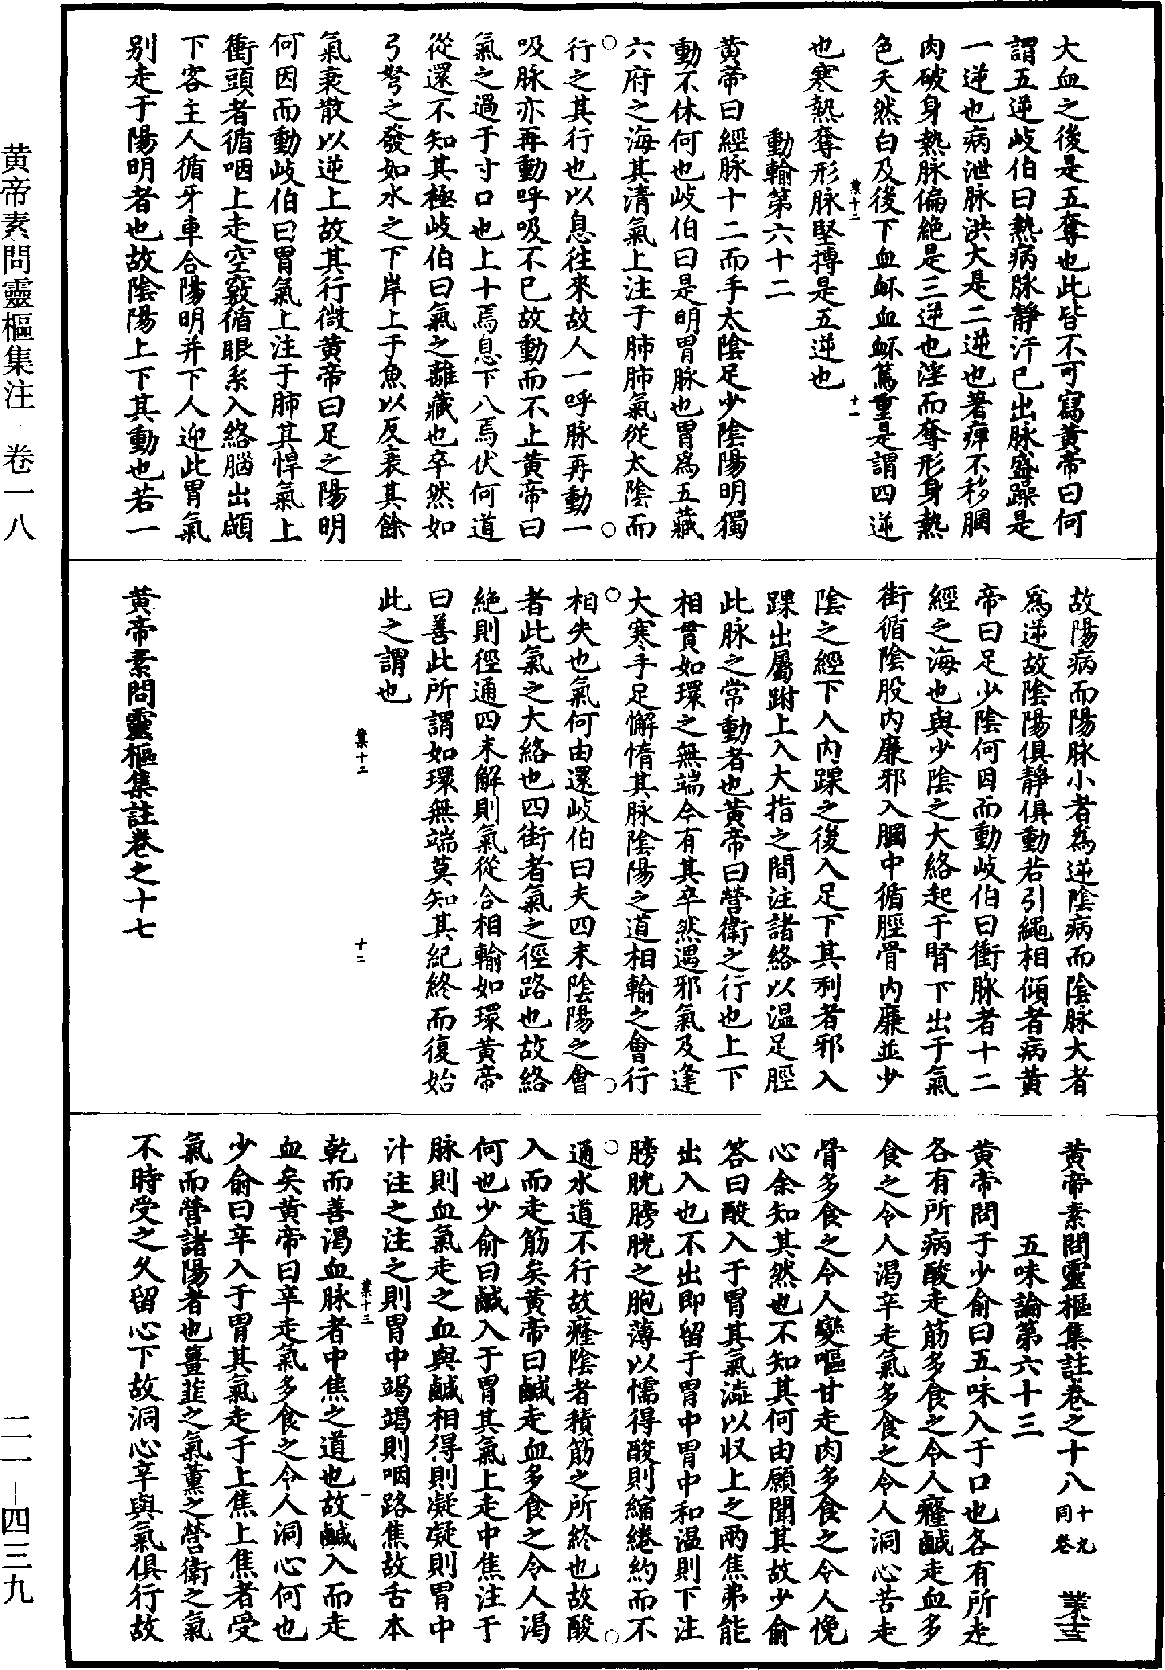 大血之後是五奪也此皆不可寫黄帝曰何
謂五逆歧伯曰熱病脉靜汗已出脉盛躁是
一逆也病泄脉洪大是二逆也著痺不移䐃
肉破身熱脉偏絶是三逆也淫而奪形身熱
色夭然白及後下血衃血衃篤重是謂四逆
也寒熱奪形脉堅搏是五逆也
業十二
十一
動輸第六十二
黄帝曰經脉十二而手太陰足少陰陽明獨
動不休何也歧伯曰是明胃脉也胃爲五藏
六府之海其清氣上注于肺肺氣從太陰而
行之其行也以息往來故人一呼脉再動一
吸脉亦再動呼吸不已故動而不止黄帝曰
氣之過于寸口也上十焉息下八焉伏何道
從還不知其極歧伯曰氣之離藏也卒然如
弓弩之發如水之下岸上于魚以反衰其餘
氣衰散以逆上故其行微黄帝曰足之陽明
何因而動歧伯曰胃氣上注于肺其悍氣上
衝頭者循咽上走空竅循眼系入絡腦出顑
下客主人循牙車合陽明并下人迎此胃氣
别走于陽明者也故陰陽上下其動也若一
故陽病而陽脉小者爲逆陰病而陰脉大者
爲逆故陰陽俱靜俱動若引繩相傾者病黄
帝曰足少陰何因而動歧伯曰衝脉者十二
經之海也與少陰之大絡起于腎下出于氣
街循陰股内廉邪入膕中循脛骨内廉並少
陰之經下入内踝之後入足下其别者邪入
踝出屬跗上入大指之間注諸絡以温足脛
此脉之常動者也黄帝曰營衛之行也上下
相貫如環之無端今有其卒然遇邪氣及逢
大寒手足懈惰其脉陰陽之道相輸之會行
相失也氣何由還歧伯曰夫四末陰陽之會
者此氣之大絡也四街者氣之徑路也故絡
絶則徑通四末解則氣從合相輸如環黄帝
曰善此所謂如環無端莫知其紀終而復始
此之謂也
業十二
十二
黄帝素問靈樞集註卷之十七
黄帝素問靈樞集註卷之十八 十九同卷 業十三
五味論第六十三
黄帝問于少俞曰五味入于口也各有所走
各有所病酸走筋多食之令人癃鹹走血多
食之令人渴辛走氣多食之令人洞心苦走
骨多食之令人變嘔甘走肉多食之令人悗
心余知其然也不知其何由願聞其故少俞
答曰酸入于胃其氣澁以收上之兩焦弗能
出入也不出即留于胃中胃中和温則下注
膀胱膀胱之胞薄以懦得酸則縮綣約而不
通水道不行故癃陰者積筋之所終也故酸
入而走筋矣黄帝曰鹹走血多食之令人渴
何也少俞曰鹹入于胃其氣上走中焦注于
脉則血氣走之血與鹹相得則凝凝則胃中
汁注之注之則胃中竭竭則咽路焦故舌本
業十三
一
乾而善渴血脉者中焦之道也故鹹入而走
血矣黄帝曰辛走氣多食之令人洞心何也
少俞曰辛入于胃其氣走于上焦上焦者受
氣而營諸陽者也薑韮之氣薰之營衛之氣
不時受之久留心下故洞心辛與氣俱行故
黄帝素問靈樞集注 卷一八
二一—四三九